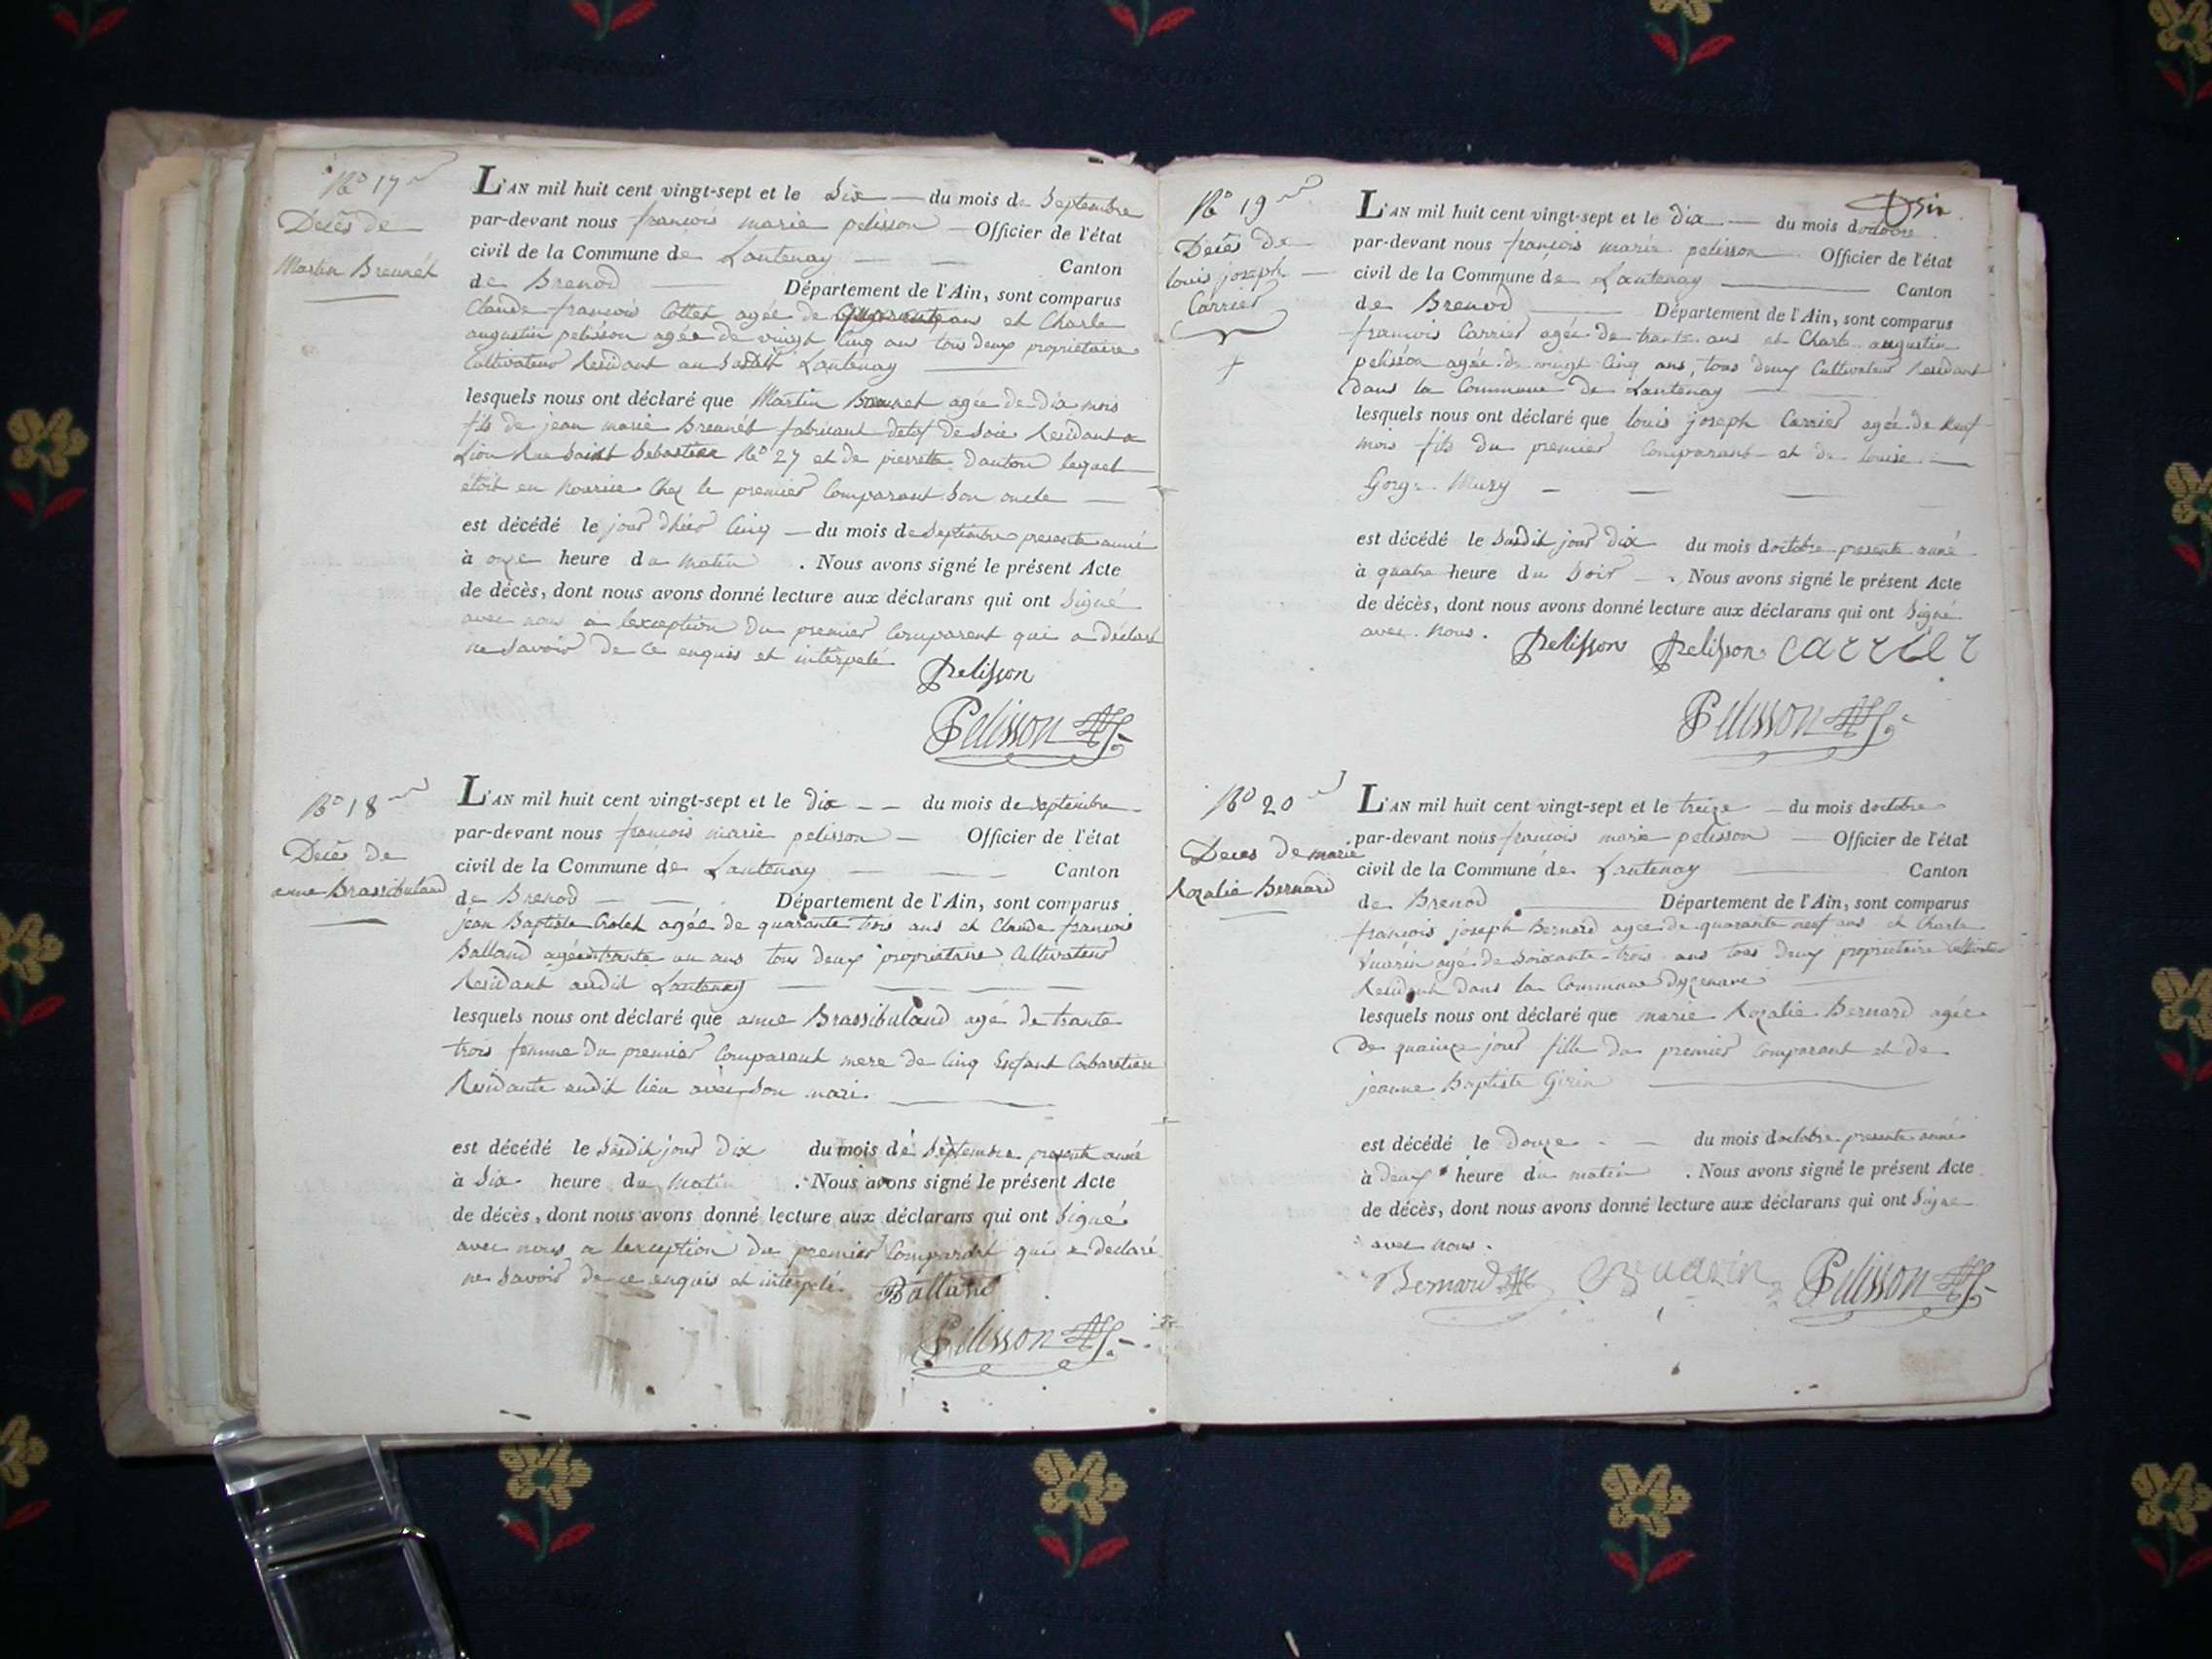 No 17
Decès de
Martin Breunét
L'AN mil huit cent vingt-sept et le Six — du mois de Septembre
par-devant nous francois marie pelisson — Officier de l'état
civil de la Commune de Lantenay — — Canton
de Brenod — Département de l'Ain, sont comparus
Claude francois Cottet agée de quarante ans et Charle
augustin pelisson agée de vingt Cinq ans tous deux propriétaire
Cultivateur Residant au Susdit Lantenay —
lesquels nous ont déclaré que Martin Breunet agée de dix mois
fils de jean marie Breunét fabricant detof de Soie Residant a
Lion Rue Saint Sebastien No 27 et de pierrette dauton lequel
étoit en Nourice Chez le premier Comparant Son oncle —
est décédé le jour dhier Cinq — du mois de Septembre presente anné
à onze heure du Matin . Nous avons signé le présent Acte
de décès, dont nous avons donné lecture aux déclarans qui ont Signé
avec nous a lexception du premier Comparent qui a déclaré
ne Savoir de Ce enquis et interpelé
Pelisson
Pelisson
No 18
Decès de
anne Brassibuland
L'AN mil huit cent vingt-sept et le dix — — du mois de Septembre
par-devant nous francois marie pelisson — Officier de l'état
civil de la Commune de Lantenay — — Canton
de Brenod — — Département de l'Ain, sont comparus
jean Baptiste Crolet agée de quarante trois ans et Claude francois
Balland agée trante un ans tous deux propriétaire Cultivateur
Residant audit Lantenay — — — —
lesquels nous ont déclaré que anne Brassibuland agé de trante
trois femme du premier Comparant mere de Cinq Enfant Cabaretiere
Residante audit lieu avec Son mari. —
est décédé le Susdit jour dix du mois de Septembre presente anné
à Six heure du Matin . Nous avons signé le présent Acte
de décès, dont nous avons donné lecture aux déclarans qui ont Signé
avec nous a lexception du premier Comparant qui a declaré
ne Savoir de ce enquis et interpelé. Balland
Pelisson
No 19
Decès de
louis joseph —
Carrier
L'AN mil huit cent vingt-sept et le dix — du mois doctobre
par-devant nous françois marie pelisson Officier de l'état
civil de la Commune de Lantenay — Canton
de Brenod — Département de l'Ain, sont comparus
francois Carrier agée de trante ans et Charle augustin
pelisson agée de vingt Cinq ans, tous deux Cultivateur Residant
dans la Commune de Lantenay —
lesquels nous ont déclaré que louis joseph Carrier agée de Neuf
mois fils du premier Comparant et de louise —
Gorge Muzy — — —
est décédé le Susdit jour dix du mois doctobre presente anné
à quatre heure du Soir — . Nous avons signé le présent Acte
de décès, dont nous avons donné lecture aux déclarans qui ont Signé
avec Nous. Pelisson Pelisson Carrier
Pelisson
No 20
Deces de marie
Rozalie Bernard
L'AN mil huit cent vingt-sept et le treize — du mois doctobre
par-devant nous francois marie pelisson — Officier de l'état
civil de la Commune de Lantenay — Canton
de Brenod — Département de l'Ain, sont comparus
francois joseph Bernard agée de quarante neuf ans et Charle
Vuarin agé de Soixante-trois ans tous deux proprietaire Cultivateur
Residant dans la Commune
lesquels nous ont déclaré que marie Rozalie Bernard agée
de quainze jour fille du premier Comparant et de
jeanne Baptiste Girin —
est décédé le douze — du mois doctobre presente anné
à deux heure du matin . Nous avons signé le présent Acte
de décès, dont nous avons donné lecture aux déclarans qui ont Signe
avec Nous.
Bernard Vuarin Pelisson